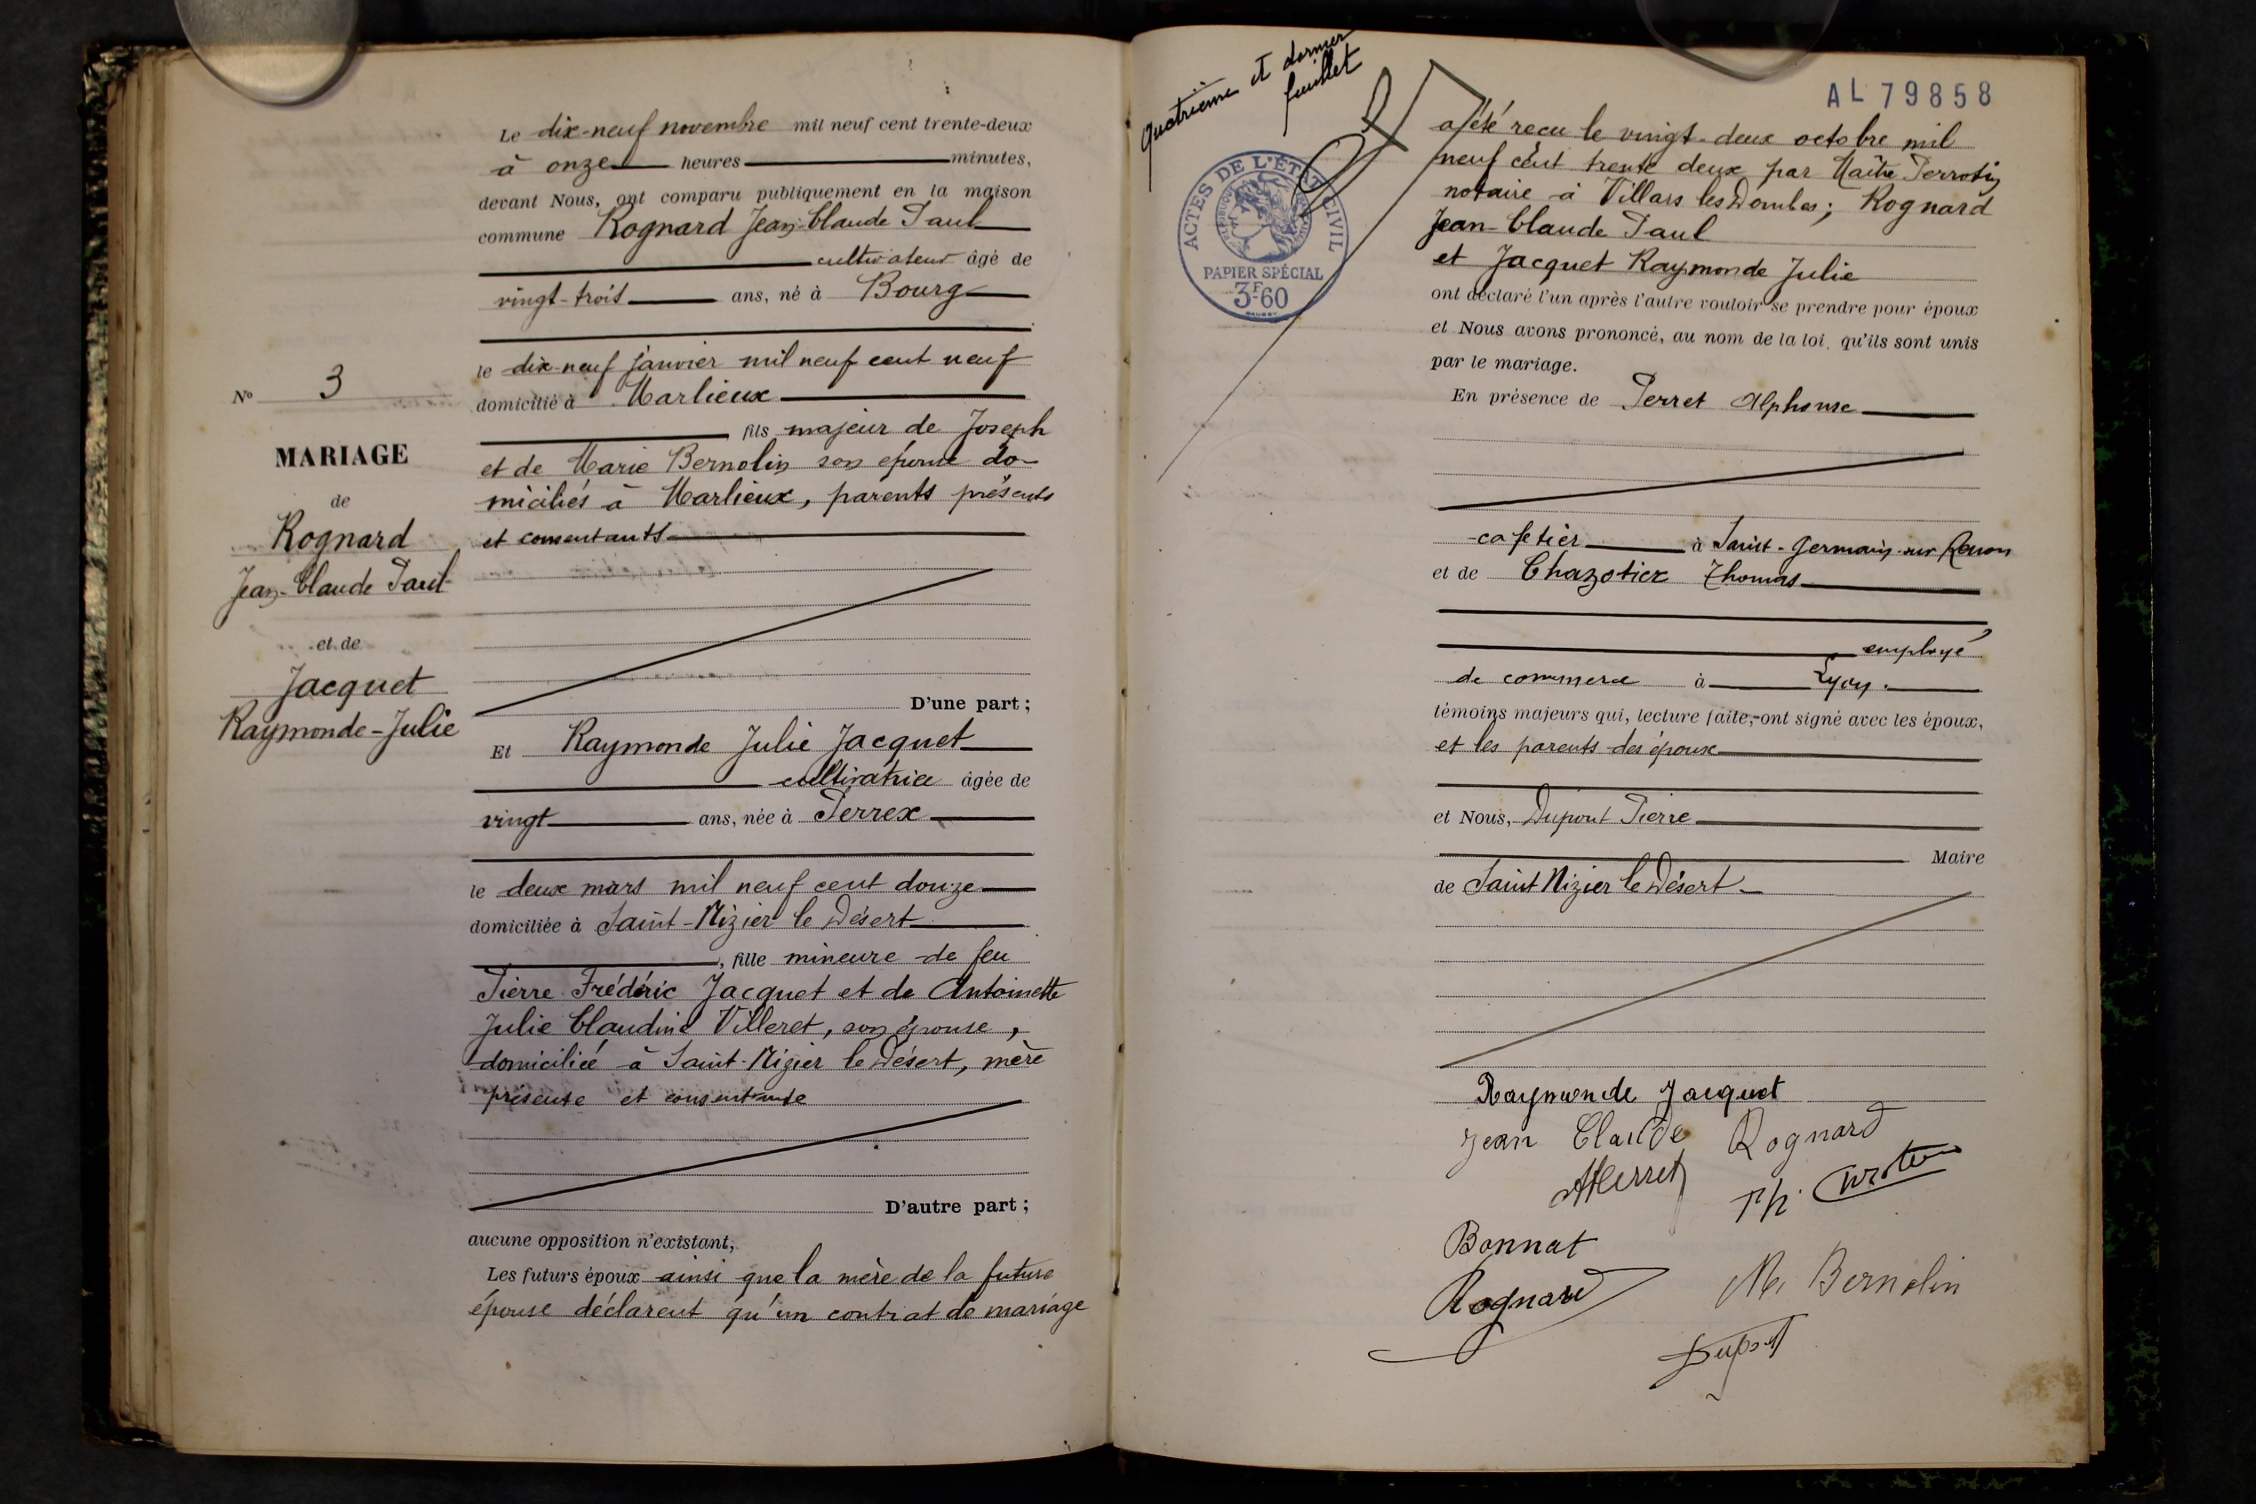 Le dix-neuf novembre mil neuf cent trente-deux
à onze heures minutes,
devant Nous, ont comparu publiquement en la maison
commune Rognard Jean-Claude Paul
cultivateur âgé de
vingt-trois ans, né à Bourg
le dix-neuf janvier mil neuf cent neuf
domicilié à Marlieux
fils majeur de Joseph
et de Marie Bernolin son épouse do-
miciliés à Marlieux, parents présents
et consentants
D'une part ;
Et Raymonde Julie Jacquet
cultivatrice âgée de
vingt ans, née à Perrex
le deux mars mil neuf cent douze
domiciliée à Saint-Nizier le Désert
, fille mineure de feu
Pierre Frédéric Jacquet et de Antoinette
Julie Claudine Villeret, son épouse,
domiciliée à Saint-Nizier le Désert, mère
présente et consentante
D'autre part ;
aucune opposition n'existant,
Les futurs époux ainsi que la mère de la future
épouse déclarent qu'un contrat de mariage
N° 3
MARIAGE
de
Rognard
Jean-Claude Paul
et de
Jacquet
Raymonde-Julie
quatrième et dernier
feuillet
ACTES DE L'ÉTAT CIVIL
PAPIER SPÉCIAL
3F60
AL 79858
a été reçu le vingt-deux octobre mil
neuf cent trente deux par Maître Perrotin
notaire à Villars les Dombes; Rognard
Jean-Claude Paul
et Jacquet Raymonde Julie
ont déclaré l'un après l'autre vouloir se prendre pour époux
et Nous avons prononcé, au nom de la loi, qu'ils sont unis
par le mariage.
En présence de Perret Alphonse
cafetier à Saint-Germain-sur Renon
et de Chazotier Thomas
employé
de commerce à Lyon.
témoins majeurs qui, lecture faite, ont signé avec les époux,
et les parents des époux
et Nous, Dupont Pierre
Maire
de Saint Nizier le Désert
Raymonde Jacquet
Jean Claude Rognard
APerret
Th.
Bonnat
Rognard
M. Bernolin
Dupont